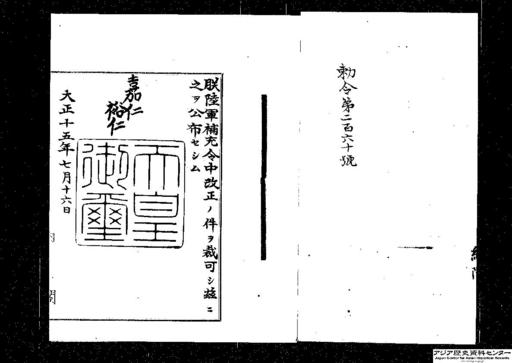 勅令第二百六十號
朕陸軍補充令中改正ノ件ヲ裁可シ茲ニ
之ヲ公布セシム
嘉仁
裕仁
天皇
御璽
大正十五年七月十六日
内閣
アジア歴史資料センター
Japan Center for Asian Historical Records